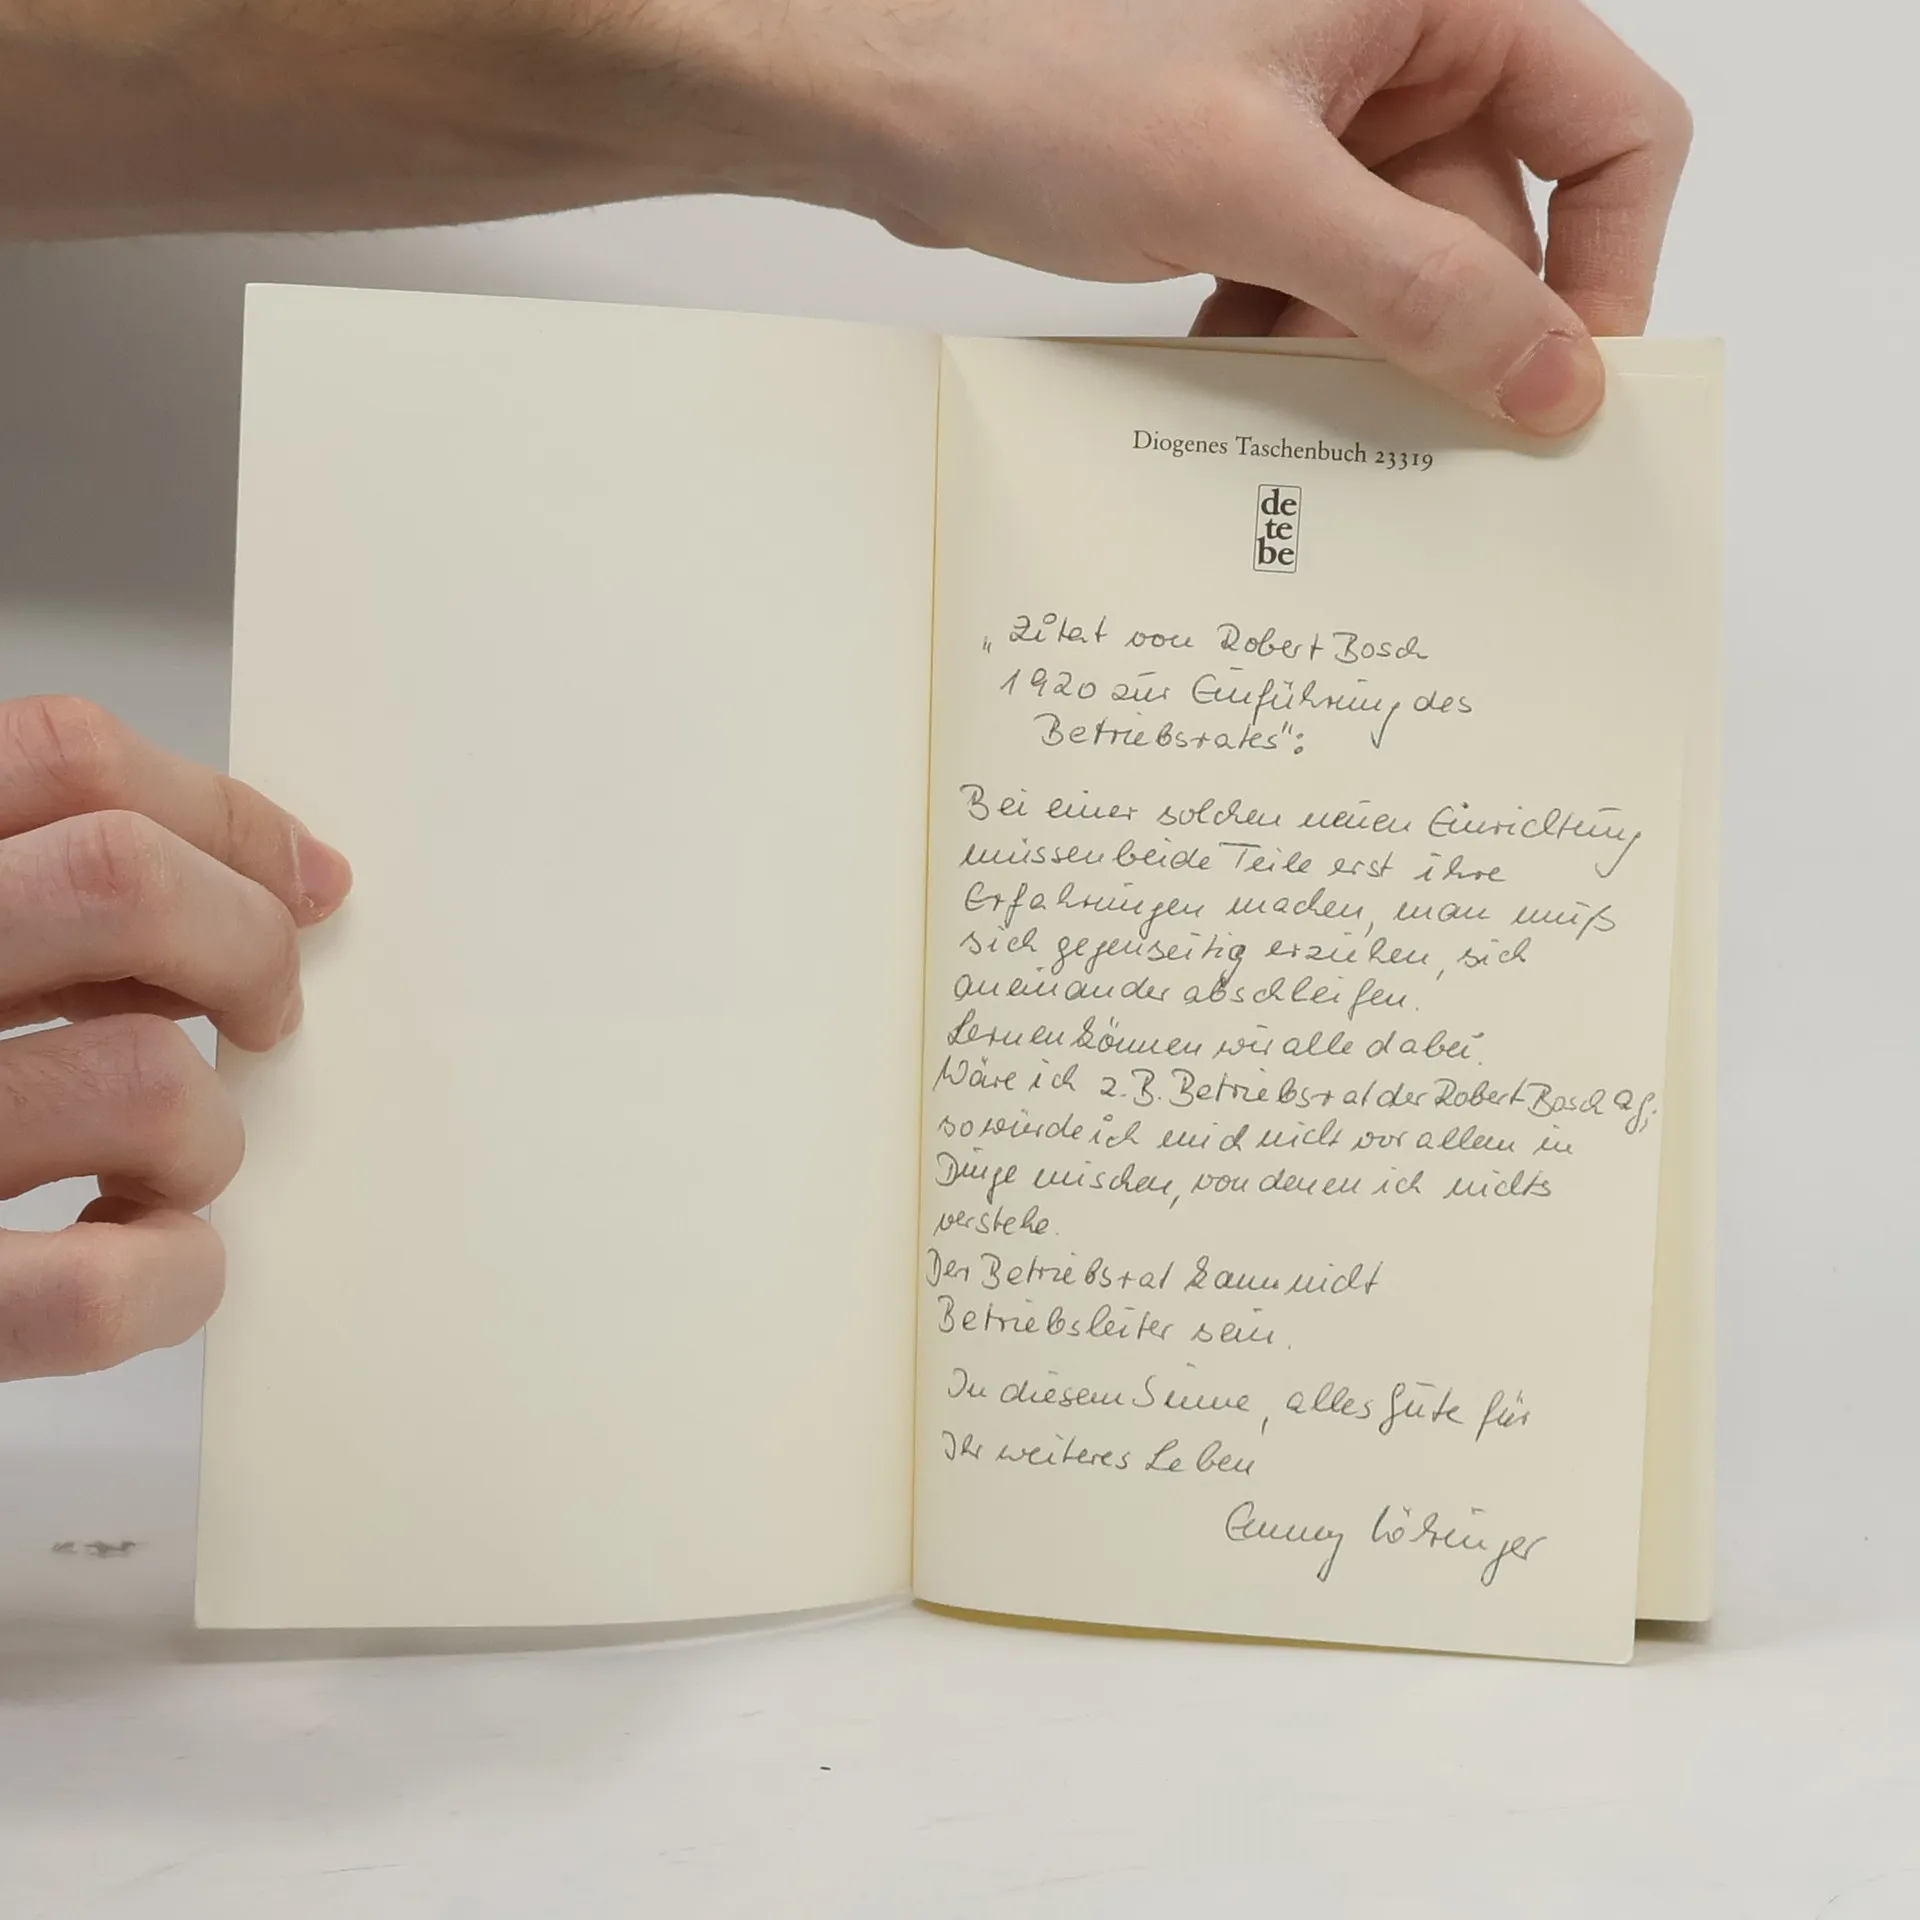 Diogenes Taschenbuch 23319
de
te
be
„Zitat von Robert Bosch
1920 zur Einführung des
Betriebsrates":
Bei einer solchen neuen Einrichtung
müssen beide Teile erst ihre
Erfahrungen machen, man muß
sich gegenseitig erziehen, sich
aneinander abschleifen.
Lernen können wir alle dabei.
Wäre ich z.B. Betriebsrat der Robert Bosch AG,
so würde ich mich nicht vor allem in
Dinge mischen, von denen ich nichts
verstehe.
Der Betriebsrat kann nicht
Betriebsleiter sein.
In diesem Sinne, alles Gute für
Ihr weiteres Leben